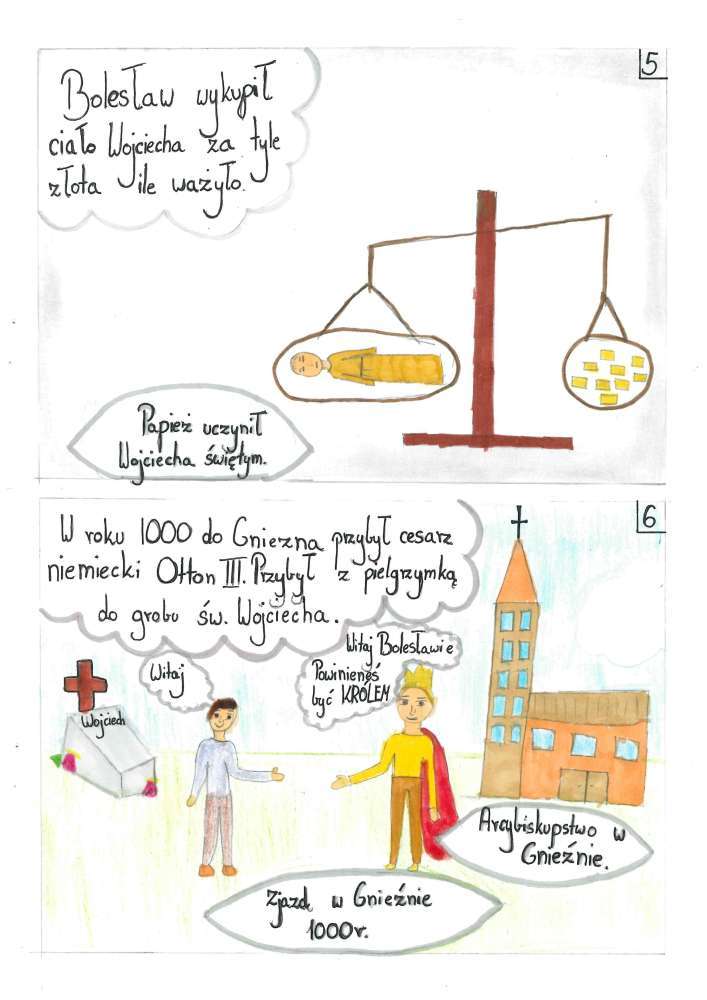 5
Bolesław wykupił
ciało Wojciecha za tyle
złota ile ważyło.
Papież uczynił
Wojciecha świętym.
6
W roku 1000 do Gniezna przybył cesarz
niemiecki Otton III. Przybył z pielgrzymką
do grobu św. Wojciecha.
Witaj
Witaj Bolesławie
Powinieneś
być KRÓLEM
Wojciech
Arcybiskupstwo w
Gnieźnie.
Zjazd w Gnieźnie
1000r.